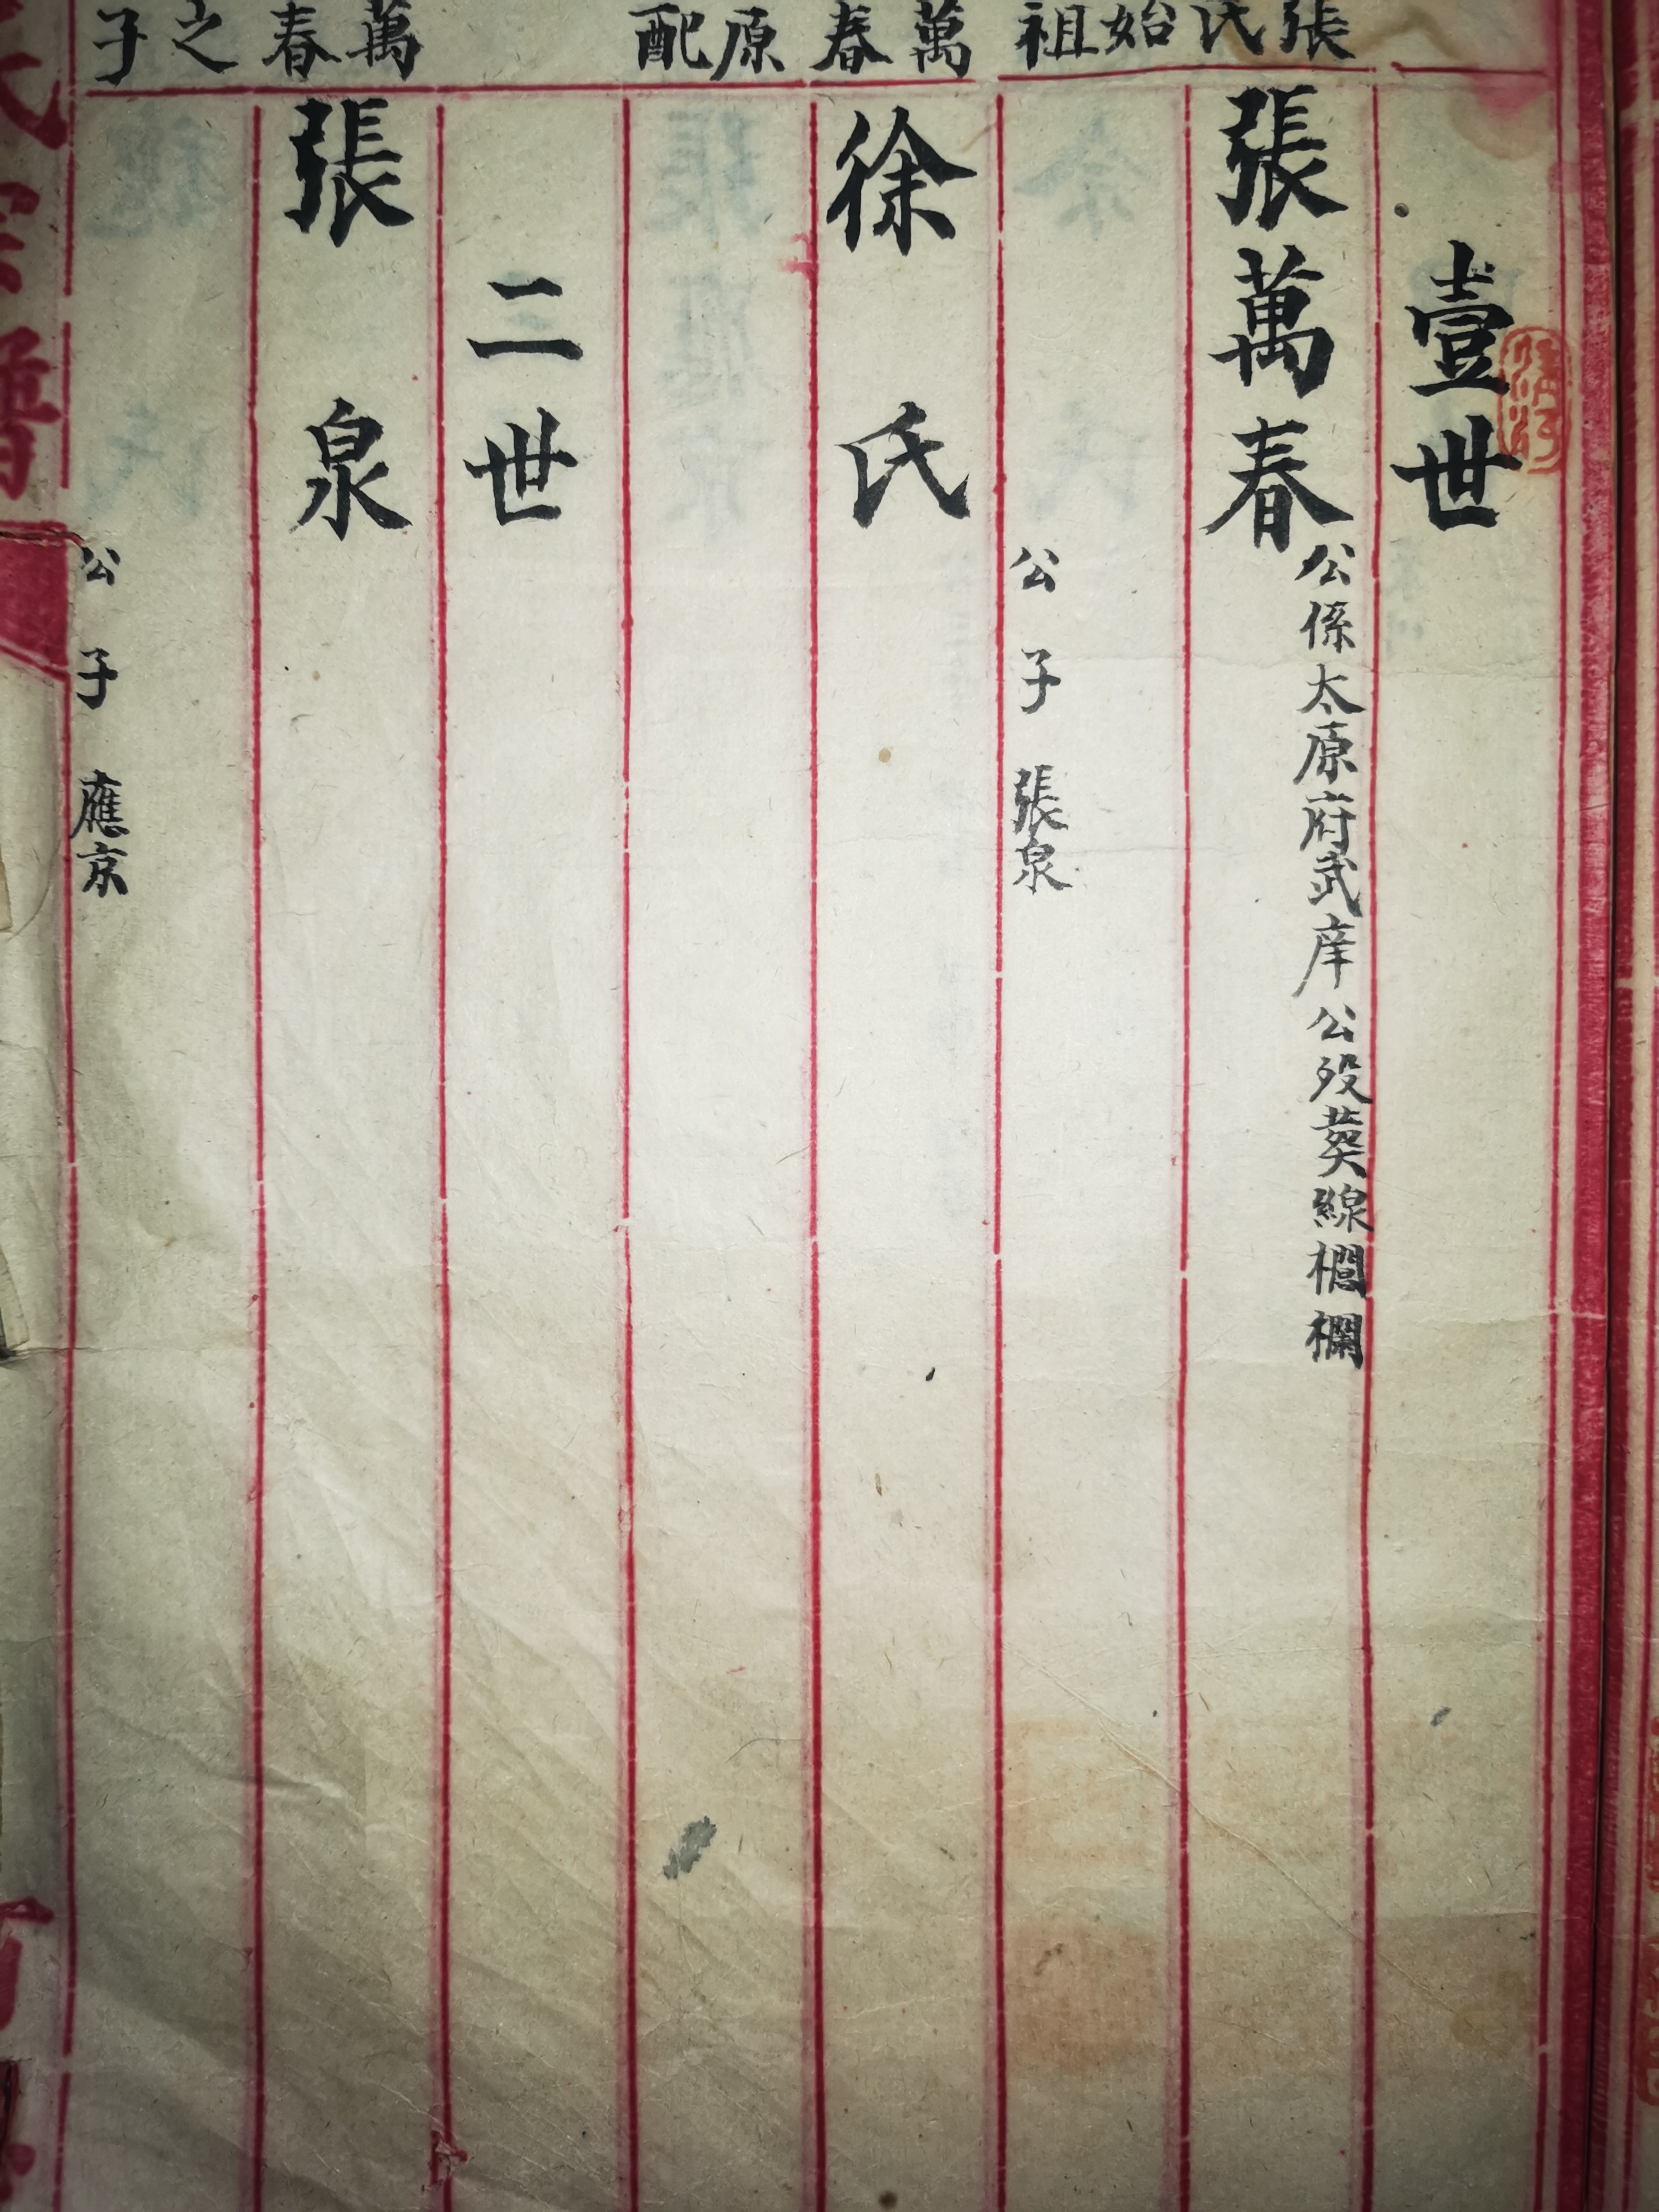 張氏始祖
萬春原配
萬春之子
壹世
張萬春
公係太原府武庠公歿葬線櫊欄
公子 張泉
徐氏
二世
張泉
公子 應京